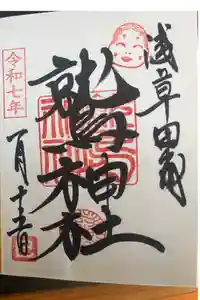 浅草田甫
鷲神社
令和七年
一月十五日